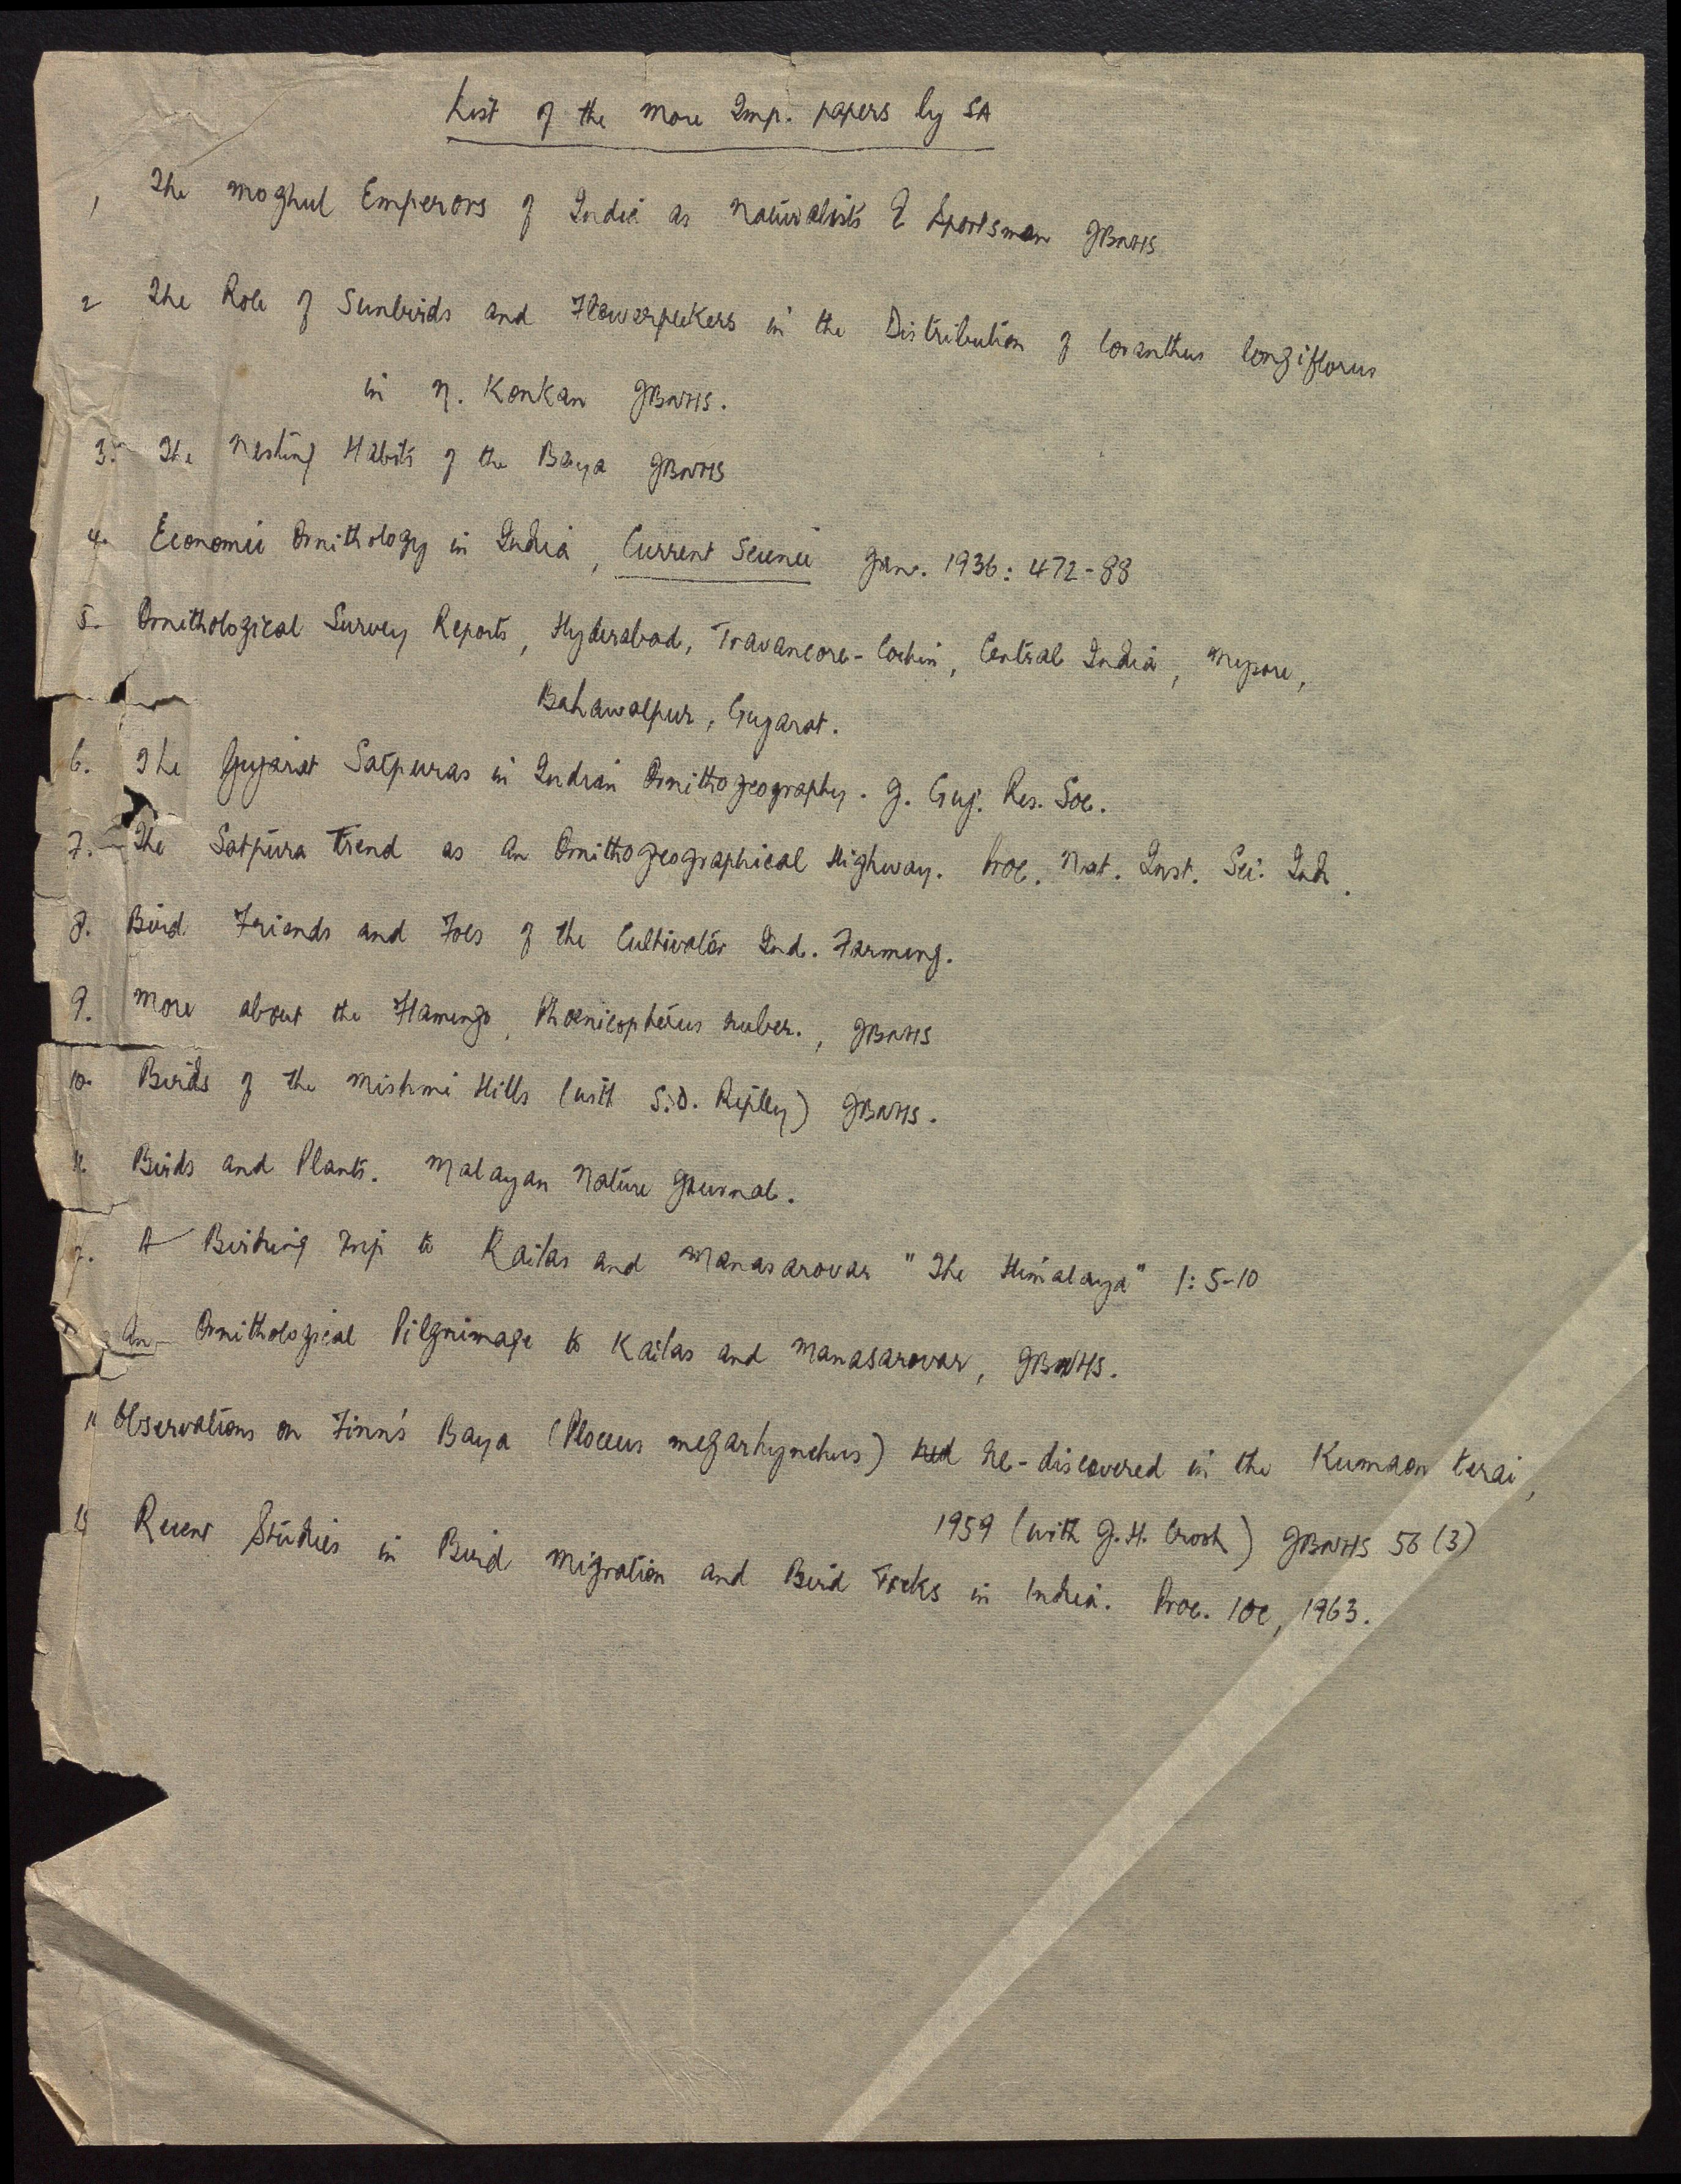 List of the more Imp. papers by SA
1 The Moghul Emperors of India as Naturalists & Sportsmen JBNHS
2 The Role of Sunbirds and Flowerpeckers in the Distribution of Loranthus longiflorus
in N. Konkan JBNHS.
3. The Nesting Habits of the Baya JBNHS
4. Economic Ornithology in India, Current Science Jan. 1936: 472-88
5. Ornithological Survey Reports, Hyderabad, Travancore-Cochin, Central India, Mysore,
Bahawalpur, Gujarat.
6. The Gujarat Satpuras in Indian Ornithogeography. J. Guj. Res. Soc.
7. The Satpura Trend as an Ornithogeographical Highway. Proc. Nat. Inst. Sci. Ind.
8. Bird Friends and Foes of the Cultivator Ind. Farming.
9. More about the Flamingo, Phoenicopterus ruber., JBNHS
10. Birds of the Mishmi Hills (with S.D. Ripley) JBNHS.
11. Birds and Plants. Malayan Nature Journal.
A Birding Trip to Kailas and Manasarovar "The Himalaya" 1: 5-10
An Ornithological Pilgrimage to Kailas and Manasarovar, JBNHS.
14 Observations on Finn's Baya (Ploceus megarhynchus) re-discovered in the Kumaon terai,
1959 (with J.H. Crook) JBNHS 56 (3)
15 Recent Studies in Bird Migration and Bird Ticks in India. Proc. IOC, 1963.